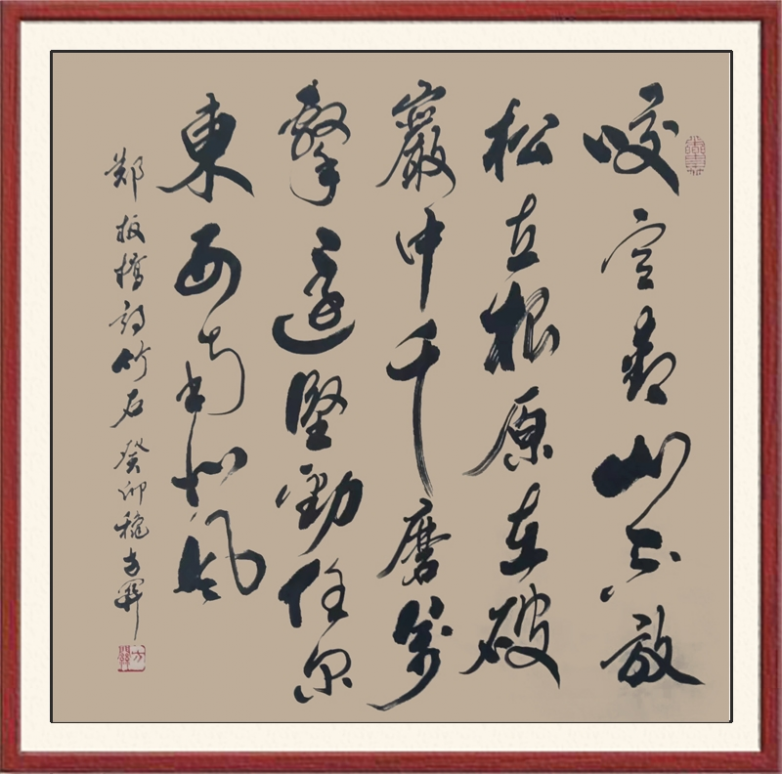 咬定青山不放
松立根原在破
巖中千磨萬
擊還堅勁任尔
東西南北风
鄭板橋詩竹石癸卯穐方